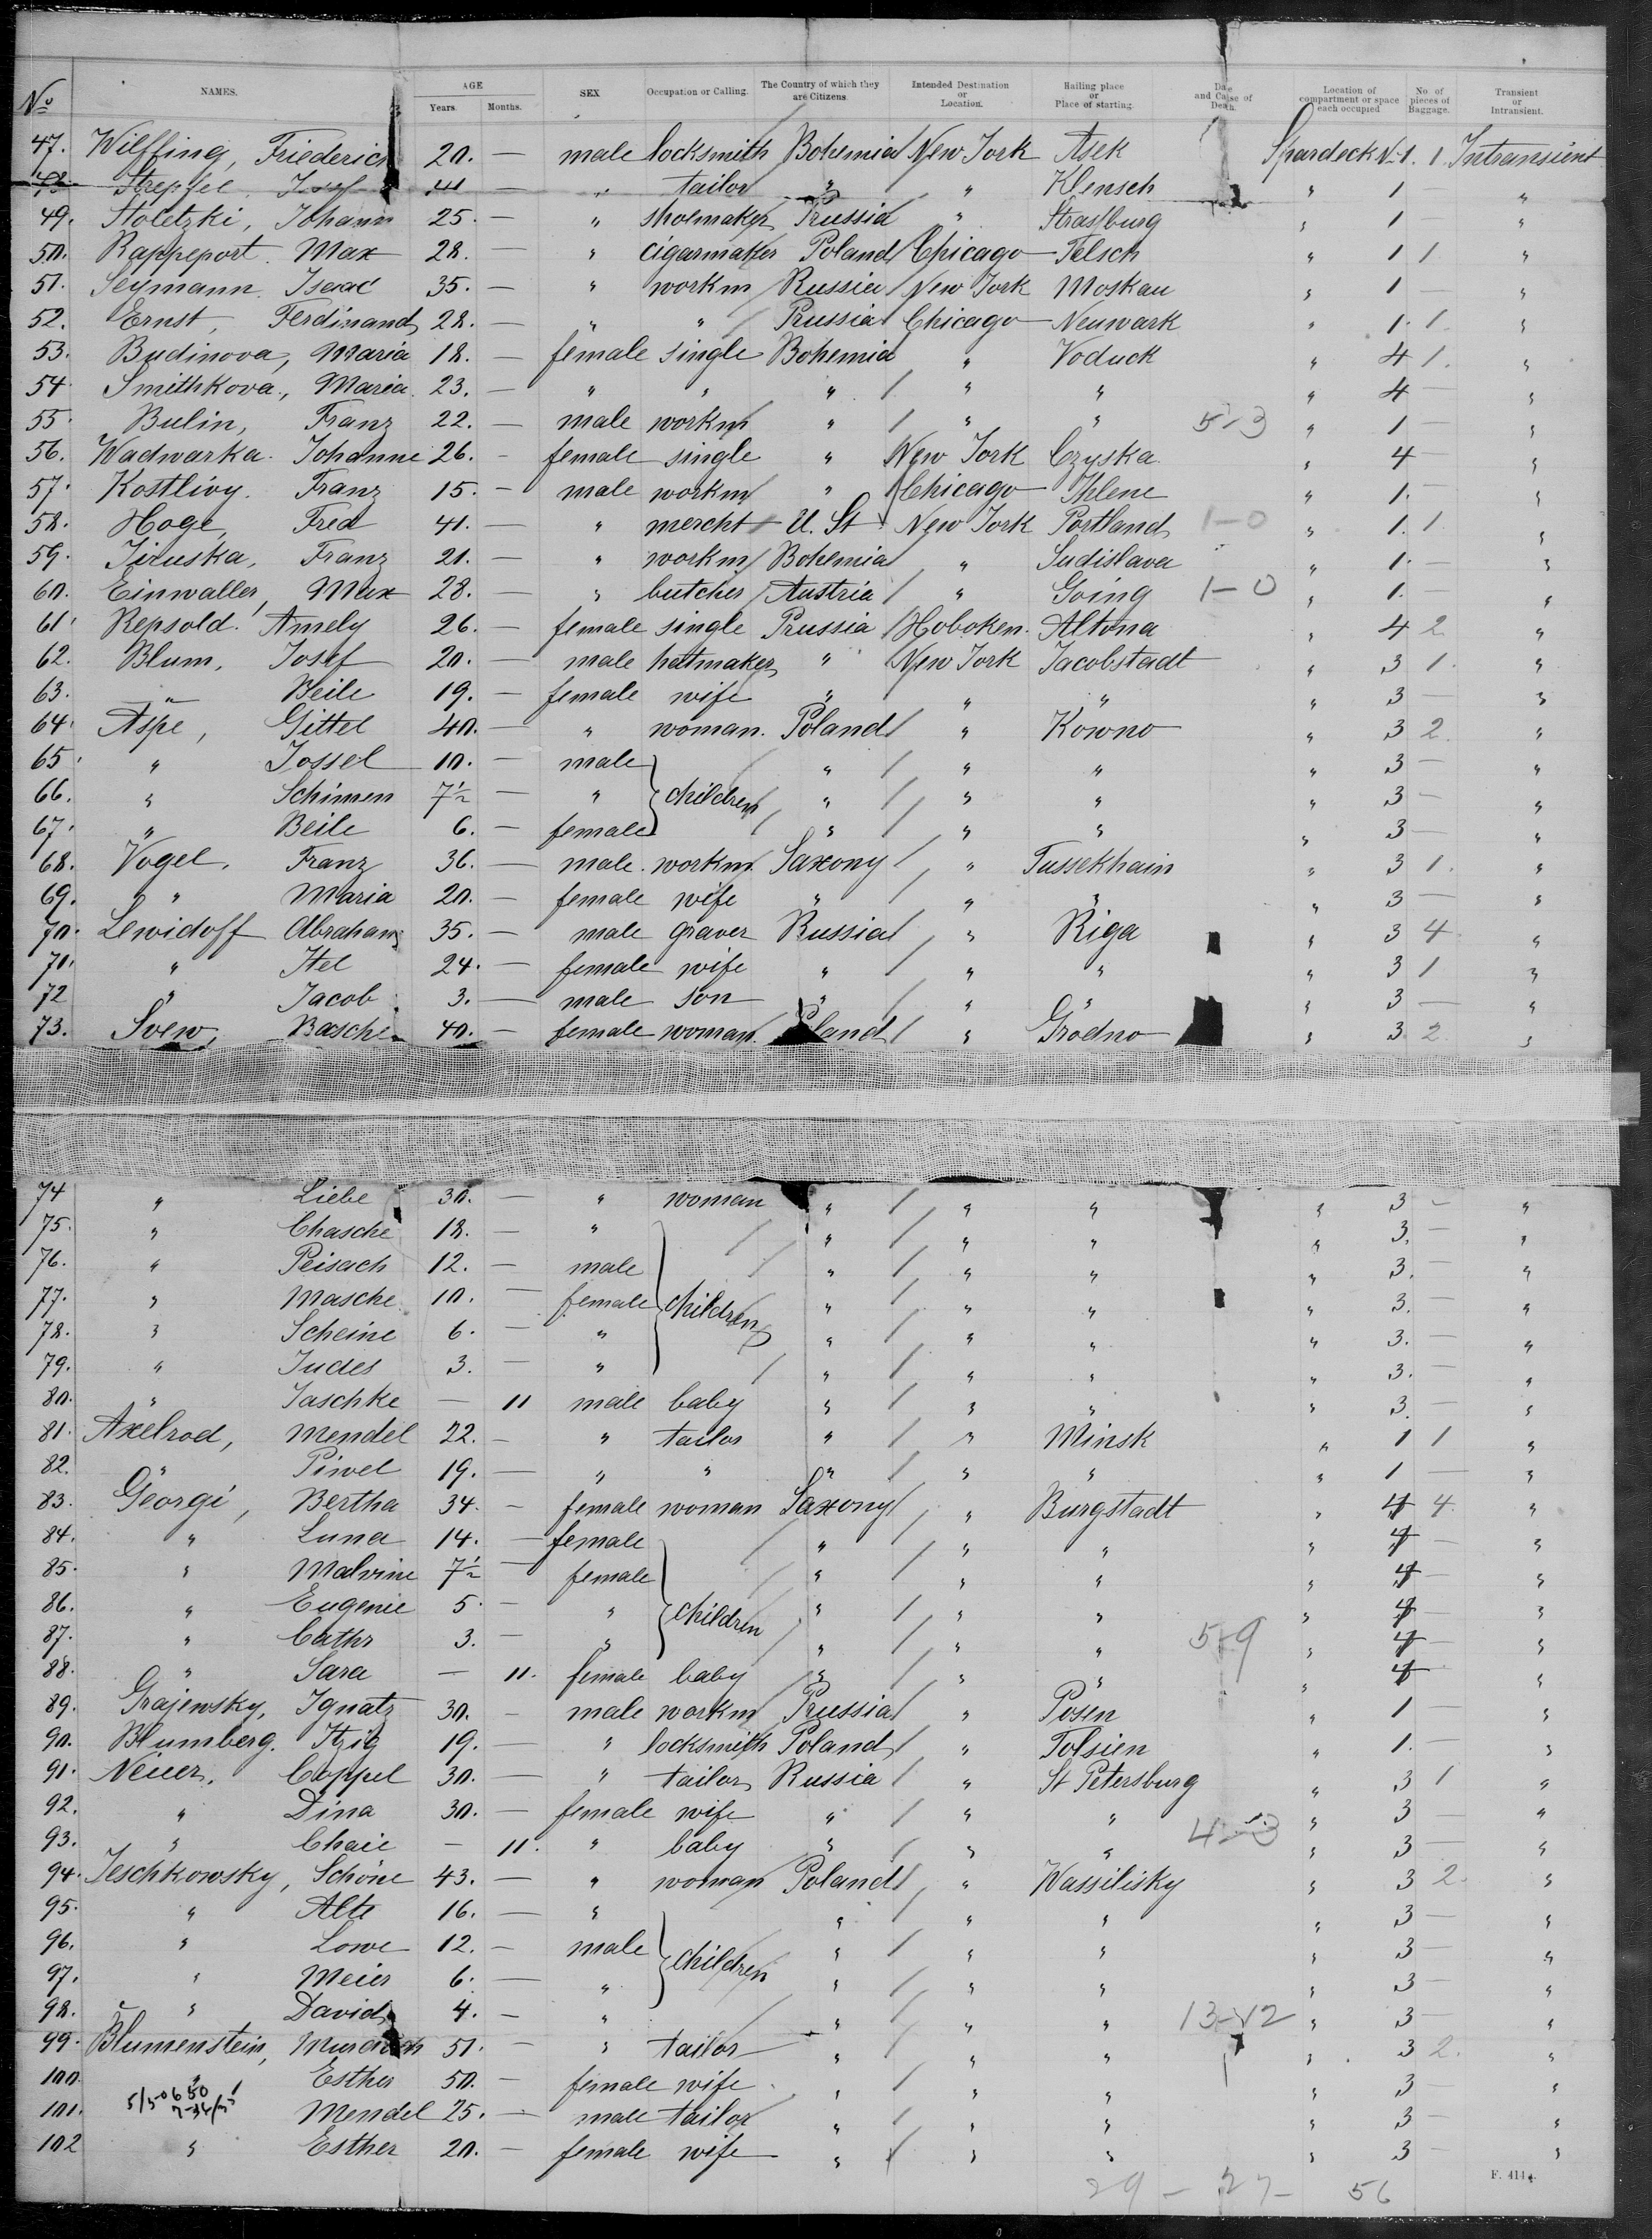 No NAMES. AGE Years. Months. SEX Occupation or Calling. The Country of which they are Citizens. Intended Destination or Location. Hailing place or Place of starting. Date and Cause of Death. Location of compartment or space each occupied No. of pieces of Baggage. Transient or Intransient.
47. Wilffing, Friederich 20. — male locksmith Bohemia New York Asek Spardeck N. 1. 1 Intransient
48. Strepfel, Josef 41 — " tailor " " Klensch " 1 "
49. Stoletzki, Johann 25. — " shoemaker Prussia " Strasburg " 1 — "
50. Rappeport. Max 28. — " cigarmaker Poland Chicago Telsch " 1 1 "
51. Seymann. Isaac 35. — " workm Russia New York Moskau " 1 — "
52. Ernst, Ferdinand 28. — " " Prussia Chicago Neuwark " 1. 1. "
53. Budinova, Maria 18. — female single Bohemia " Voduck " 4 1. "
54. Smithkova, Maria. 23. — " " " " " " 4 — "
55. Bulin, Franz 22. — male workm " " " 5-3 " 1 — "
56. Wadwarka. Johanne 26. - female single " New York Czyska " 4 — "
57. Kostlivy. Franz 15. — male workm " Chicago Ihlene " 1. — "
58. Hoge, Fred 41. — " mercht U. St New York Portland 1-0 " 1. 1 "
59. Jiruska, Franz 21. — " workm Bohemia " Sudislava " 1. — "
60. Einwaller, Max 28. — " butcher Austria " Going 1-0 " 1. — "
61. Repsold. Amely 26. — female single Prussia Hoboken. Altona " 4 2 "
62. Blum, Josef 20. — male hatmaker " New York Jacobstadt " 3 1. "
63. " Beile 19. — female wife " " " " 3 — "
64. Aspe, Gittel 40. — " woman. Poland " Kowno " 3 2. "
65. " Jossel 10. — male " " " " 3 — "
66. " Schimen 7½ — " children " " " " 3 — "
67. " Beile 6. — female " " " " 3 — "
68. Vogel, Franz 36. — male. workm. Saxony " Tussekhain " 3 1. "
69. " Maria 20. — female wife " " " " 3 — "
70. Lewidoff Abraham 35. — male graver Russia " Riga " 3 4 "
71. " Itel 24. — female wife " " " " 3 1 "
72 " Jacob 3. — male son " " " " 3 — "
73. Svew, Basche 40. — female woman. Poland " Grodno " 3 2. "
74 " Liebe 30. — " woman " " " " 3 - "
75. " Chasche 18. — " " " " " 3. — "
76. " Peisach 12. — male " " " " 3. — "
77. " Masche 10. — female children " " " " 3. — "
78. " Scheine 6. — " " " " " 3. — "
79. " Judes 3. — " " " " " 3. — "
80. " Jaschke — 11 male baby " " " " 3. — "
81. Axelrod, Mendel 22. — " tailor " " Minsk " 1 1 "
82. " Piwel 19. — " " " " " " 1 — "
83. Georgi, Bertha 34. — female woman Saxony " Burgstadt " 4 4. "
84. " Luna 14. — female " " " " 4 — "
85. " Malvine 7½ — female " " " " 4 — "
86. " Eugenie 5. — " children " " " " 4 — "
87. " Cathr 3. — " " " " 5-9 " 4 — "
88. " Sara — 11. female baby " " " " 4 — "
89. Grajewsky, Ignatz 30. — male workm Prussia " Posen " 1 — "
90. Blumberg. Itzig 19. — " locksmith Poland " Tolsien " 1. — "
91. Neuer, Coppel 30. — " tailor Russia " St Petersburg " 3 1 "
92. " Dina 30. — female wife " " " " 3 — "
93. " Chaie — 11. " baby " " " 4-3 " 3 — "
94. Jeschkowsky, Schöne 43. — " woman Poland " Wassilisky " 3 2. "
95. " Alte 16. — " " " " " 3 — "
96. " Lowe 12. — male children " " " " 3 — "
97. " Meier 6. — " " " " " 3 — "
98. " David 4. — " " " " 13-12 " 3 — "
99. Blumenstein, 51. — " tailor " " " " 3 2. "
100. Esther 50. — female wife " " " " 3 — "
101. Mendel 25. — male tailor " " " " 3 — "
102 " Esther 20. — female wife " " " " 3 — "
29 - 27 - 56
F. 414